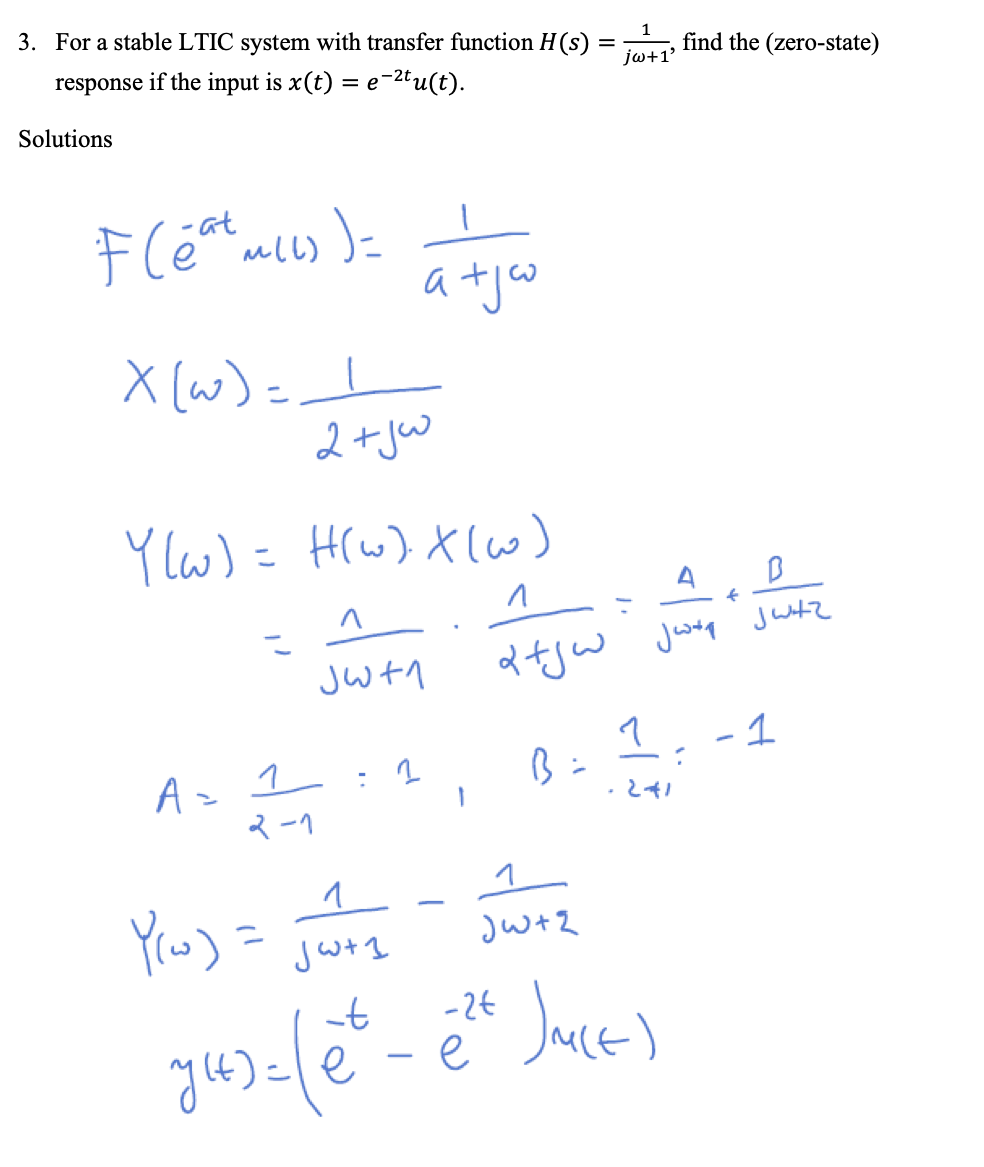 3. For a stable LTIC system with transfer function H(s) = 1/(jω+1), find the (zero-state)
response if the input is x(t) = e^{-2t}u(t).
Solutions
F(e^{-at} u(t)) = 1/(a+jω)
X(ω) = 1/(2+jω)
Y(ω) = H(ω). X(ω)
= 1/(jω+1) . 1/(2+jω) = A/(jω+1) + B/(jω+2)
A = 1/(2-1) = 1, B = 1/(-2+1) = -1
Y(ω) = 1/(jω+1) - 1/(jω+2)
y(t) = (e^{-t} - e^{-2t})u(t)